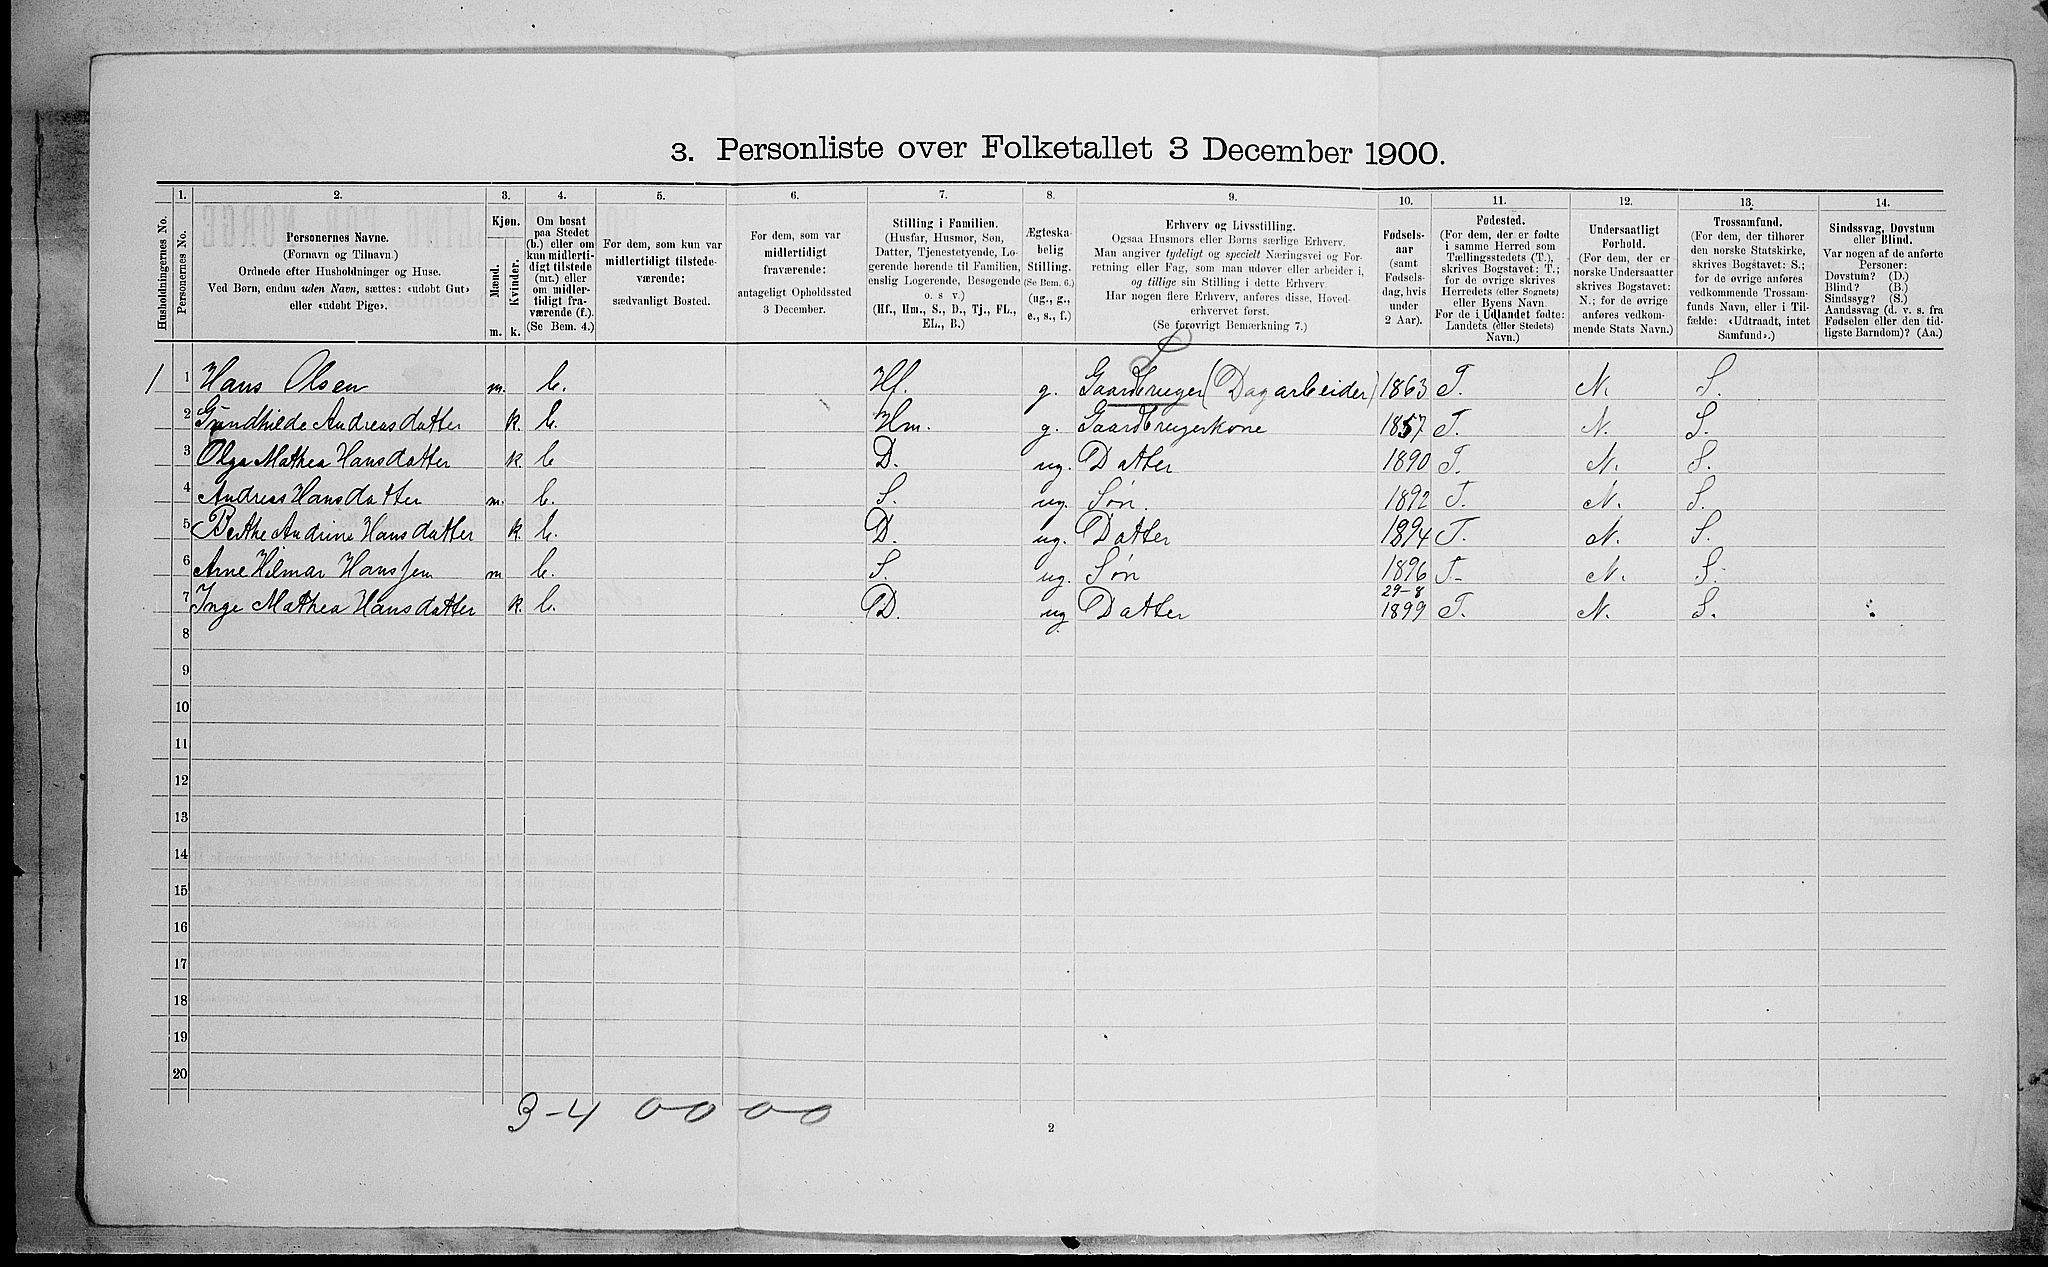 3. Personliste over Folketallet 3 December 1900.
Husholdningernes No.
1.
Personernes No.
2.
Personernes Navne.
(Fornavn og Tilnavn.)
Ordnede efter Husholdninger og Huse.
Ved Børn, endnu uden Navn, sættes: «udøbt Gut»
eller «udøbt Pige».
3.
Kjøn.
Mænd.
Kvinder.
m. k.
4.
Om bosat
paa Stedet
(b.) eller om
kun midlerti-
digt tilstede
(mt.) eller
om midler-
tidigt fra-
værende (f.).
(Se Bem. 4.)
5.
For dem, som kun var
midlertidigt tilstede-
værende:
sædvanligt Bosted.
6.
For dem, som var
midlertidigt
fraværende:
antageligt Opholdssted
3 December.
7.
Stilling i Familien.
(Husfar, Husmor, Søn,
Datter, Tjenestetyende, Lo-
gerende hørende til Familien,
enslig Logerende, Besøgende
o. s v.)
(Hf., Hm., S., D., Tj., FL.,
EL., B.)
8.
Ægteska-
belig
Stilling.
(Se Bem. 6.)
(ug., g.,
e., s., f.)
9.
Erhverv og Livsstilling.
Ogsaa Husmors eller Børns særlige Erhverv.
Man angiver tydeligt og specielt Næringsvei og For-
retning eller Fag, som man udøver eller arbeider i,
og tillige sin Stilling i dette Erhverv.
Har nogen flere Erhverv, anføres disse, Hoved-
erhvervet først.
(Se forøvrigt Bemærkning 7.)
10.
Fødsels-
aar
(samt
Fødsels-
dag, hvis
under
2 Aar).
11.
Fødested.
(For dem, der er fødte
i samme Herred som
Tællingsstedets (T.),
skrives Bogstavet: T.;
for de øvrige skrives
Herredets (eller Sognets)
eller Byens Navn.
For de i Udlandet fødte:
Landets (eller Stedets)
Navn.)
12.
Undersaatligt
Forhold.
(For dem, der er
norske Undersaatter
skrives Bogstavet:
N.; for de øvrige
anføres vedkom-
mende Stats Navn.)
13.
Trossamfund.
(For dem, der tilhører
den norske Statskirke,
skrives Bogstavet: S.;
for de øvrige anføres
vedkommende Trossam-
funds Navn, eller i Til-
fælde: «Udtraadt, intet
Samfund».)
14.
Sindssvag, Døvstum
eller Blind.
Var nogen af de anførte
Personer:
Døvstum? (D.)
Blind? (B.)
Sindssyg? (S.)
Aandssvag (d. v. s. fra
Fødselen eller den tid-
ligste Barndom)? (Aa.)
1 1 Hans Olsen m. b. Hf. g. Gaardbruger (Dagarbeider) 1863 T. N. S.
2 Gundhilde Andreasdatter k. b. Hm. g. Gaardbrugerkone 1857 T. N. S.
3 Olga Mathea Hansdatter k. b D. ug. Datter 1890 T. N. S.
4 Andreas Hansdatter m. b. S. ug. Søn. 1892 T. N. S.
5 Berthe Andrine Hansdatter k. b. D. ug. Datter 1894 T. N. S.
6 Arne Hilmar Hanssen m b. S. ug. Søn 1896 T. N. S.
7 Inge Mathea Hansdatter k. b. D. ug. Datter 29-8 1899 T. N. S.
8
9
10
11
12
13
14
15
16
17
18
19
20
3-4 0-0 0-0
2